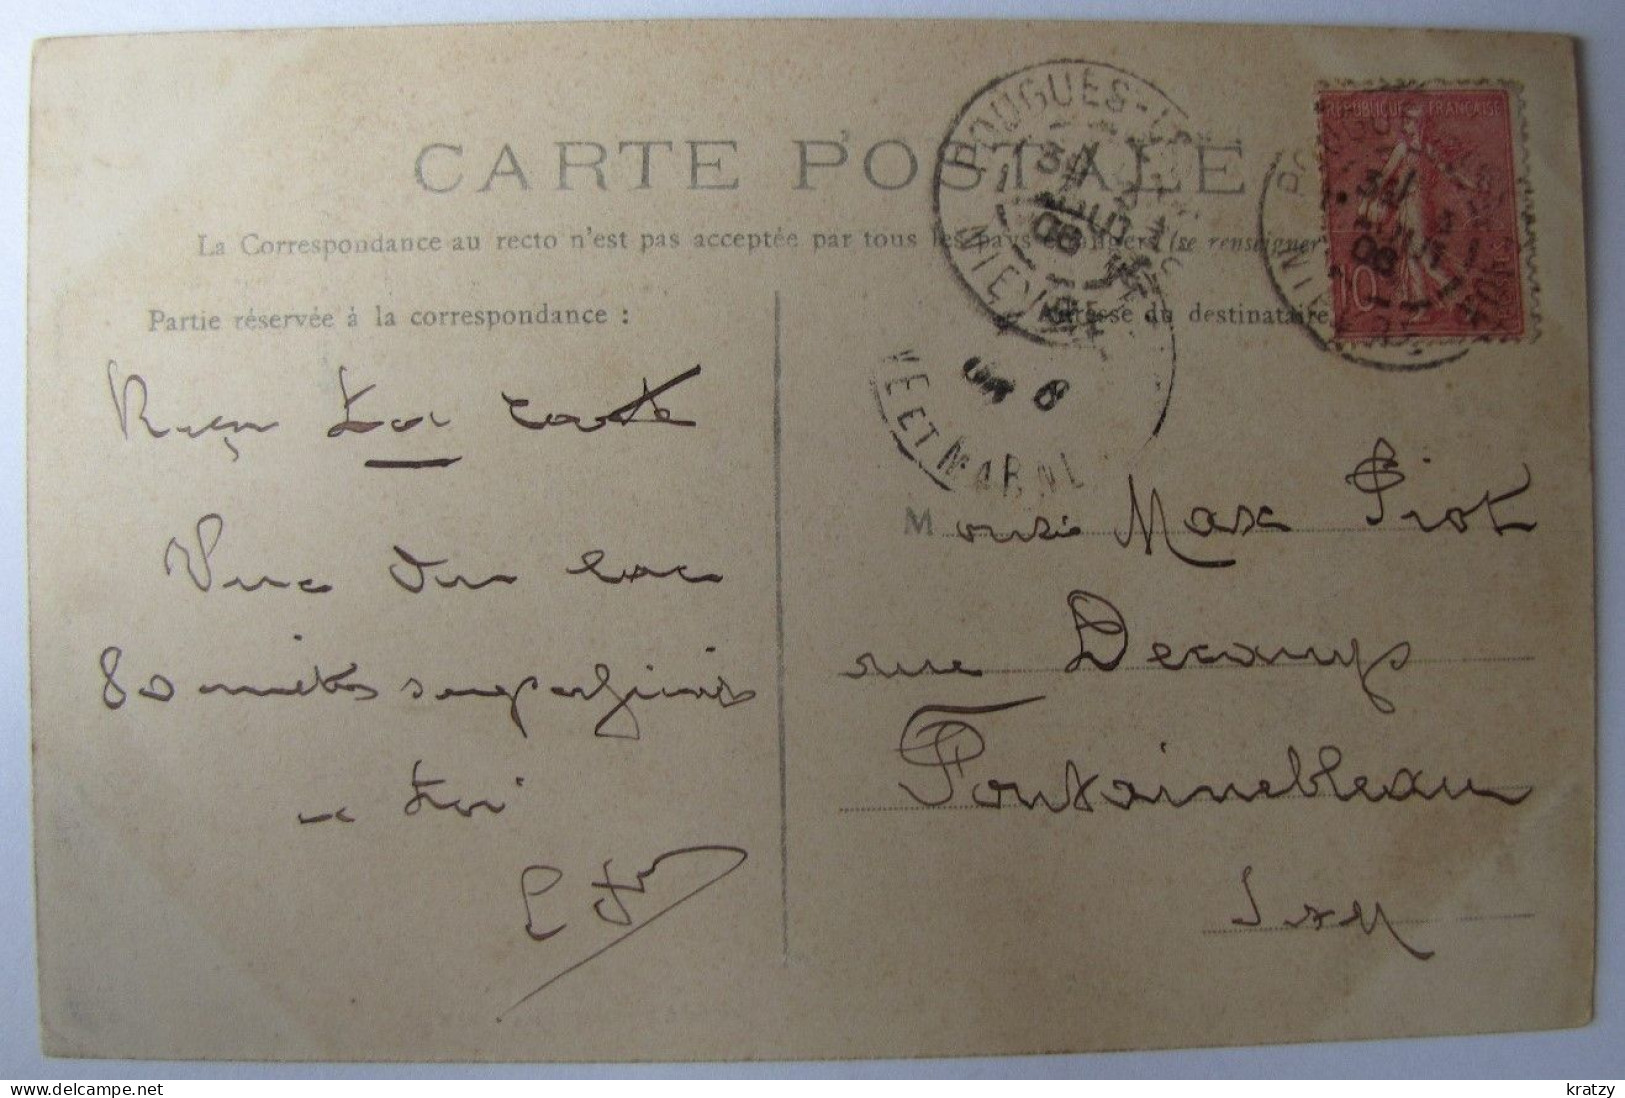 CARTE POSTALE
La Correspondance au recto n'est pas acceptée par tous les pays étrangers (se renseigner
Partie réservée à la correspondance :
Adresse du destinataire
REPUBLIQUE FRANÇAISE
10
POSTES
POUGUES-
NIEVRE
30
AOUT
06
ET MARNE
Reçu ta carte
Vue du lac
80 mètres
a toi
M onsi Max Piot
rue Decamps
Fontainebleau
S & M
kratzy